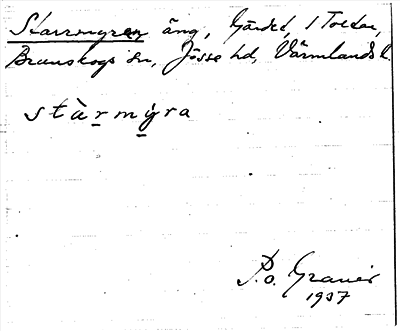 Starrmyren äng, Gärdet, i Tolder,
Brunskogs sn, Jösse hd, Värmlands l.
stàrmýra
P.o. Granér
1937